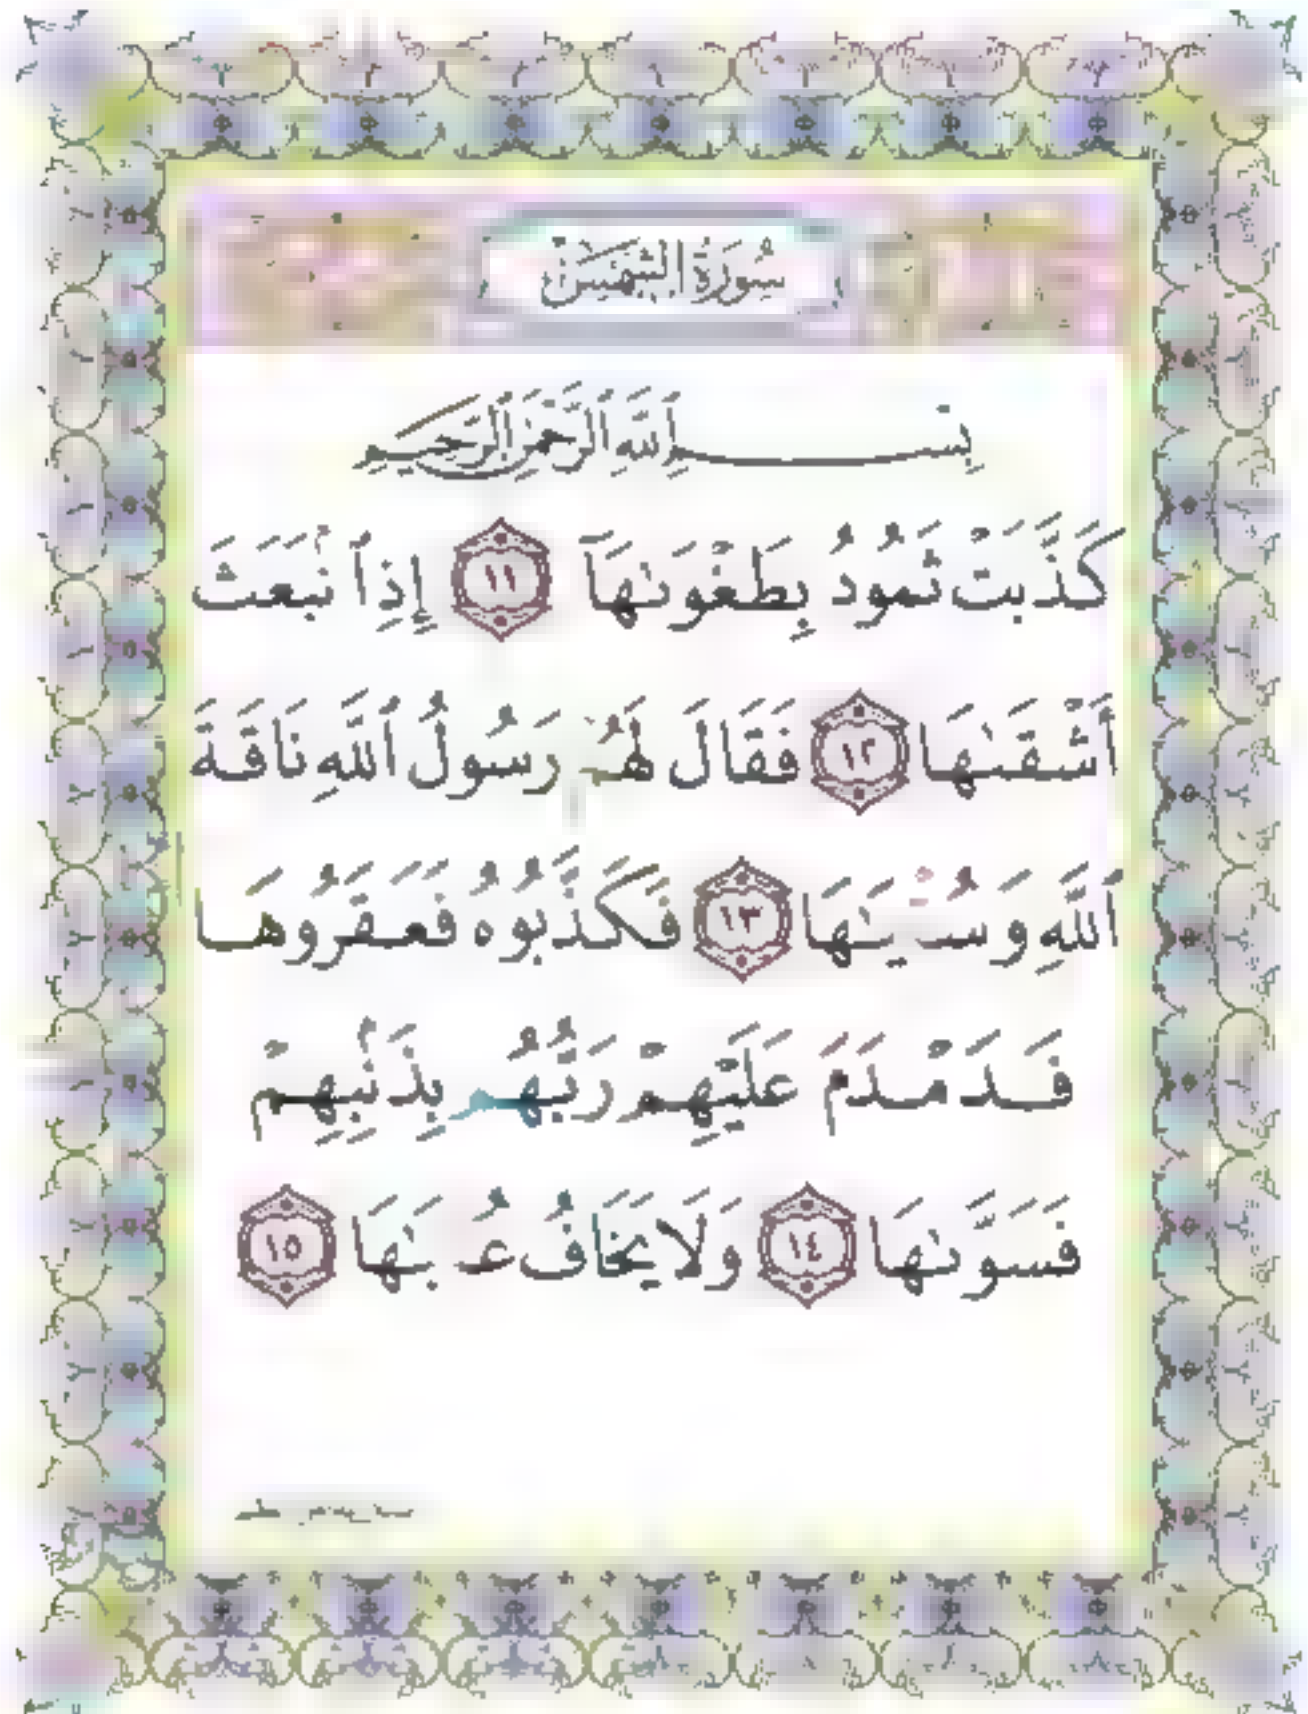 سُورَةُ الشَّمْسِ
بِسْمِ ٱللَّهِ ٱلرَّحْمَٰنِ ٱلرَّحِيمِ
كَذَّبَتْ ثَمُودُ بِطَغْوَىٰهَآ ١١ إِذِ ٱنۢبَعَثَ
أَشْقَىٰهَا ١٢ فَقَالَ لَهُمْ رَسُولُ ٱللَّهِ نَاقَةَ
ٱللَّهِ وَسُقْيَٰهَا ١٣ فَكَذَّبُوهُ فَعَقَرُوهَا
فَدَمْدَمَ عَلَيْهِمْ رَبُّهُم بِذَنۢبِهِمْ
فَسَوَّىٰهَا ١٤ وَلَا يَخَافُ عُقْبَٰهَا ١٥